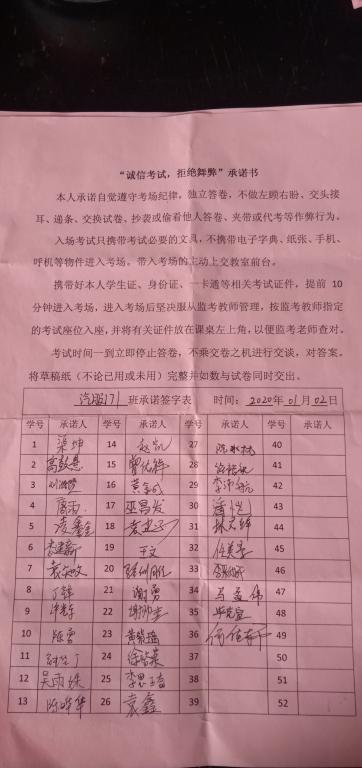 “诚信考试，拒绝舞弊”承诺书
本人承诺自觉遵守考场纪律，独立答卷，不做左顾右盼、交头接
耳、递条、交换试卷、抄袭或偷看他人答卷、夹带或代考等作弊行为。
入场考试只携带考试必要的文具，不携带电子字典、纸张、手机、
呼机等物件进入考场。带入考场的主动上交教室前台。
携带好本人学生证、身份证、一卡通等相关考试证件，提前 10
分钟进入考场，进入考场后坚决服从监考教师管理，按监考教师指定
的考试座位入座，并将有关证件放在课桌左上角，以便监考老师查对。
考试时间一到立即停止答卷，不乘交卷之机进行交谈，对答案。
将草稿纸（不论已用或未用）完整并如数与试卷同时交出。
汽服171 班承诺签字表 时间：2020年01月02日
学号 承诺人 学号 承诺人 学号 承诺人 学号 承诺人
1 梁坤 14 赵凯 27 40
2 15 28 41
3 16 黄金成 29 42
4 17 巫昌发 30 43
5 凌鑫金 18 31 44
6 19 于文 32 任美景 45
7 20 33 46
8 丁锋 21 谢勇 34 马孟伟 47
9 22 35 毕克宣 48
10 陈雷 23 36 49
11 24 37 50
12 吴雨珠 25 38 51
13 陈晔华 26 袁鑫 39 52